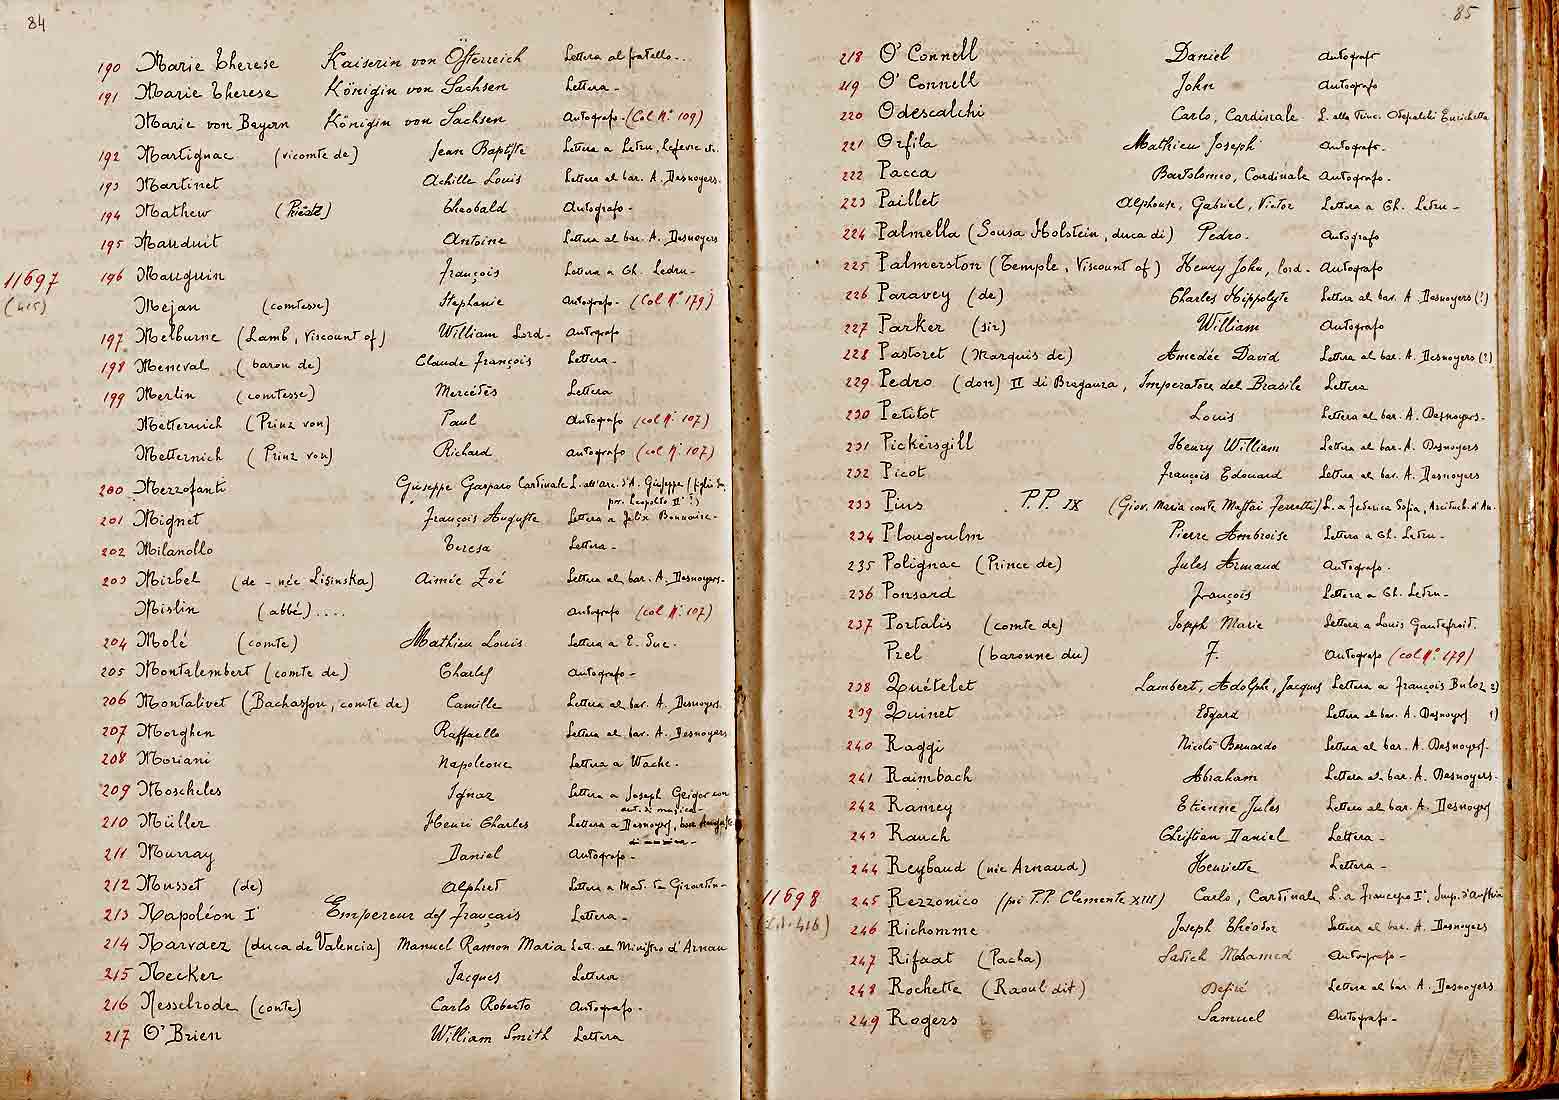 84
190 Marie Therese Kaiserin von Österreich Lettera al fratello..
191 Marie Therese Königin von Sachsen Lettera -
Marie von Bayern Königin von Sachsen Autografo - (Col N.° 109)
192 Martignac (vicomte de) Jean Baptiste Lettera a Ledru, Lefevre
193 Martinet Achille Louis Lettera al bar. A. Desnoyers.
194 Mathew Theobald Autografo -
195 Mauduit Antoine Lettera al bar. A. Desnoyers
11697 196 Mauguin François Lettera a Ch. Ledru -
(415) Mejan (comtesse) Stephanie Autografo - (Col N.° 179)
197 Melburne (Lamb, Viscount of) William Lord - Autografo
198 Meneval (baron de) Claude François Lettera -
199 Merlin (comtesse) Mercédès Lettera
Metternich (Prinz von) Paul Autografo (col N.° 107)
Metternich (Prinz von) Richard Autografo (col N.° 107)
200 Mezzofanti Giuseppe Gasparo Cardinale L. all'arc. d'A. Giuseppe (figlio
Leopoldo II° ?)
201 Mignet François Auguste Lettera a Felix Bonnaire -
202 Milanollo Teresa Lettera -
203 Mirbel (de - née Lisinska) Aimée Zoé Lettera al bar. A. Desnoyers.
Mislin (abbé) .... Autografo (col N.° 107)
204 Molé (comte) Mathieu Louis Lettera a E. Sue.
205 Montalembert (comte de) Charles Autografo -
206 Montalivet (Bachasson, comte de) Camille Lettera al bar. A. Desnoyers.
207 Morghen Raffaello Lettera al bar. A. Desnoyers
208 Moriani Napoleone Lettera a Wache.
209 Moscheles Ignaz Lettera a Joseph Geiger con
aut. di musica -
210 Müller Henri Charles Lettera a Desnoyers, bar
211 Murray Daniel Autografo -
212 Musset (de) Alphred Lettera a Mad. de Girardin -
213 Napoléon I° Empereur des Français Lettera -
214 Narvaez (duca de Valencia) Manuel Ramon Maria Lett. al Ministro d'Arnau
215 Necker Jacques Lettera
216 Nesselrode (conte) Carlo Roberto Autografo -
217 O'Brien William Smith Lettera
85
218 O'Connell Daniel Autografo
219 O'Connell John Autografo
220 Odescalchi Carlo, Cardinale L. alla Princ. Odescalchi Enrichetta
221 Orfila Mathieu Joseph Autografo -
222 Pacca Bartolomeo, Cardinale Autografo -
223 Paillet Alphonse, Gabriel, Victor Lettera a Ch. Ledru -
224 Palmella (Sousa Holstein, duca di) Pedro. Autografo
225 Palmerston (Temple, Viscount of) Henry John, lord - Autografo
226 Paravey (de) Charles Hippolyte Lettera al bar. A. Desnoyers (?)
227 Parker (sir) William Autografo
228 Pastoret (Marquis de) Amedée David Lettera al bar. A. Desnoyers (?)
229 Pedro (don) II di Braganza, Imperatore del Brasile Lettera
230 Petitot Louis Lettera al bar. A. Desnoyers -
231 Pickersgill Henry William Lettera al bar. A. Desnoyers
232 Picot François Edouard Lettera al bar. A. Desnoyers
233 Pius P.P. IX (Giov. Maria conte Mastai Ferretti) L. a Federica Sofia, Arciduch. d'Au.
234 Plougoulm Pierre Ambroise Lettera a Ch. Ledru -
235 Polignac (Prince de) Jules Armand Autografo -
236 Ponsard François Lettera a Ch. Ledru -
237 Portalis (comte de) Joseph Marie Lettera a Louis Gautefroid.
Prel (baronne du) F. Autografo (col N.° 179)
238 Quételet Lambert, Adolphe, Jacques Lettera a François Buloz 2)
239 Quinet Edgard Lettera al bar. A. Desnoyers 1)
240 Raggi Nicolò Bernardo Lettera al bar. A. Desnoyers.
241 Raimbach Abraham Lettera al bar. A. Desnoyers -
242 Ramey Etienne Jules Lettera al bar. A. Desnoyers
243 Rauch Christian Daniel Lettera -
244 Reybaud (née Arnaud) Henriette Lettera -
11698 245 Rezzonico (poi P.P. Clemente XIII) Carlo, Cardinale L. a Francesco I°, Imp. d'Austria
416) 246 Richomme Joseph Théodor Lettera al bar. A. Desnoyers
247 Rifaat (Pacha) Sadich Mohamed Autografo -
248 Rochette (Raoul dit) Desiré Lettera al bar. A. Desnoyers
249 Rogers Samuel Autografo -